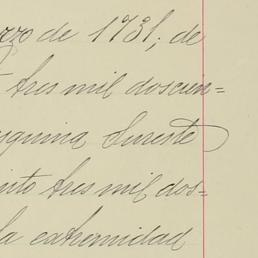 rzo de 1931, de
tres mil doscien=
squina Sureste
nto tres mil dos-
la extremidad